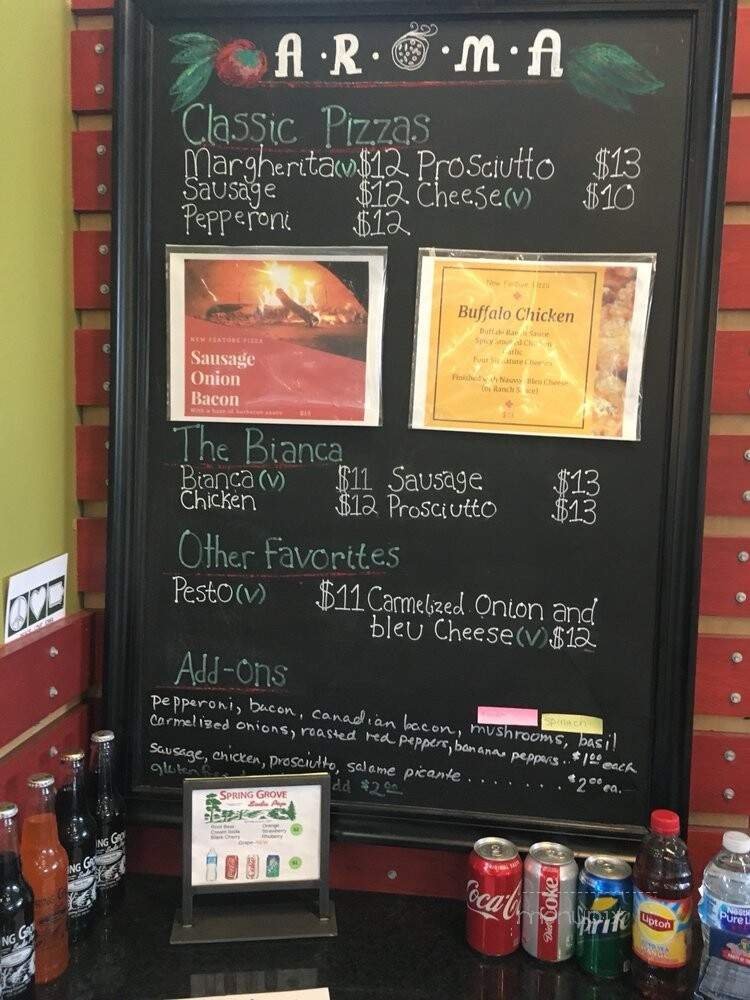 A·R·O·M·A
Classic Pizzas
Margherita(v) $12 Prosciutto $13
Sausage $12 Cheese(v) $10
Pepperoni $12
NEW FEATURE PIZZA
Sausage
Onion
Bacon
With a base of barbecue sauce
New Feature Pizza
Buffalo Chicken
Buffalo Ranch Sauce
Spicy Smoked Chicken
Garlic
Four Signature Cheeses
Finished with Bleu Cheese
(or Ranch Sauce)
The Bianca
Bianca (v) $11 Sausage $13
Chicken $12 Prosciutto $13
Other Favorites
Pesto (v) $11 Carmelized Onion and
bleu Cheese (v) $12
Add-ons
Spinach
pepperoni, bacon, canadian bacon, mushrooms, basil
Carmelized onions, roasted red peppers, banana peppers.. $1.00 each
Sausage, chicken, prosciutto, salame picante ....... $2.00 ea.
gluten add $2.00
SPRING GROVE
Soda Pop
Root Beer Orange
Cream Soda Strawberry
Black Cherry Rhuberry
Grape-NEW
Coca-Cola
Diet Coke
Sprite
Lipton
ICED TEA
Nestle
Pure L
ING GRO
ING GRO
NG GRO
NG G
menupix